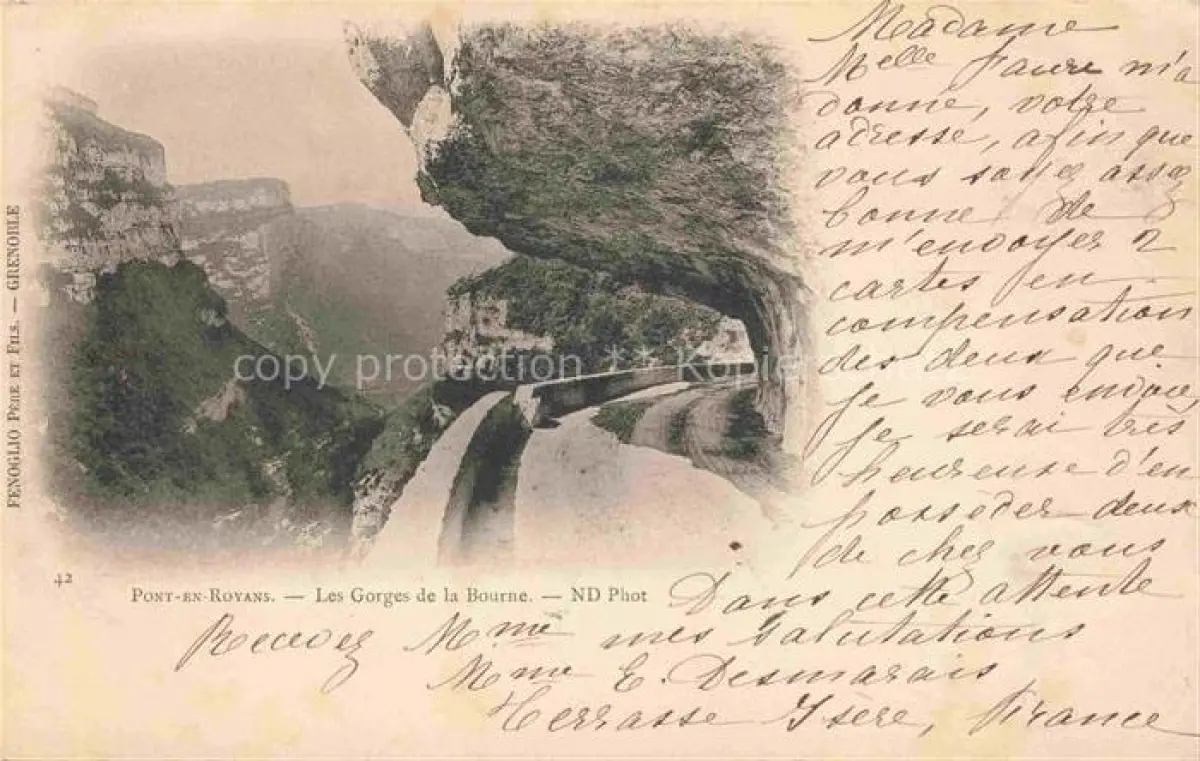 Madame
Melle Faure m'a
donné, votre
adresse, afin que
vous soyez assez
bonne de
m'envoyer 2
cartes en
compensation
des deux que
je vous envoie,
je serai très
heureuse d'en
posséder deux
de chez vous
Dans cette attente
Recevez Mme mes salutations
Mme E. Desmarais
Terrasse Isère, France
FENOGLIO PÈRE ET FILS. — GRENOBLE
42
PONT-EN-ROYANS. — Les Gorges de la Bourne. — ND Phot
copy protection ** Kopie